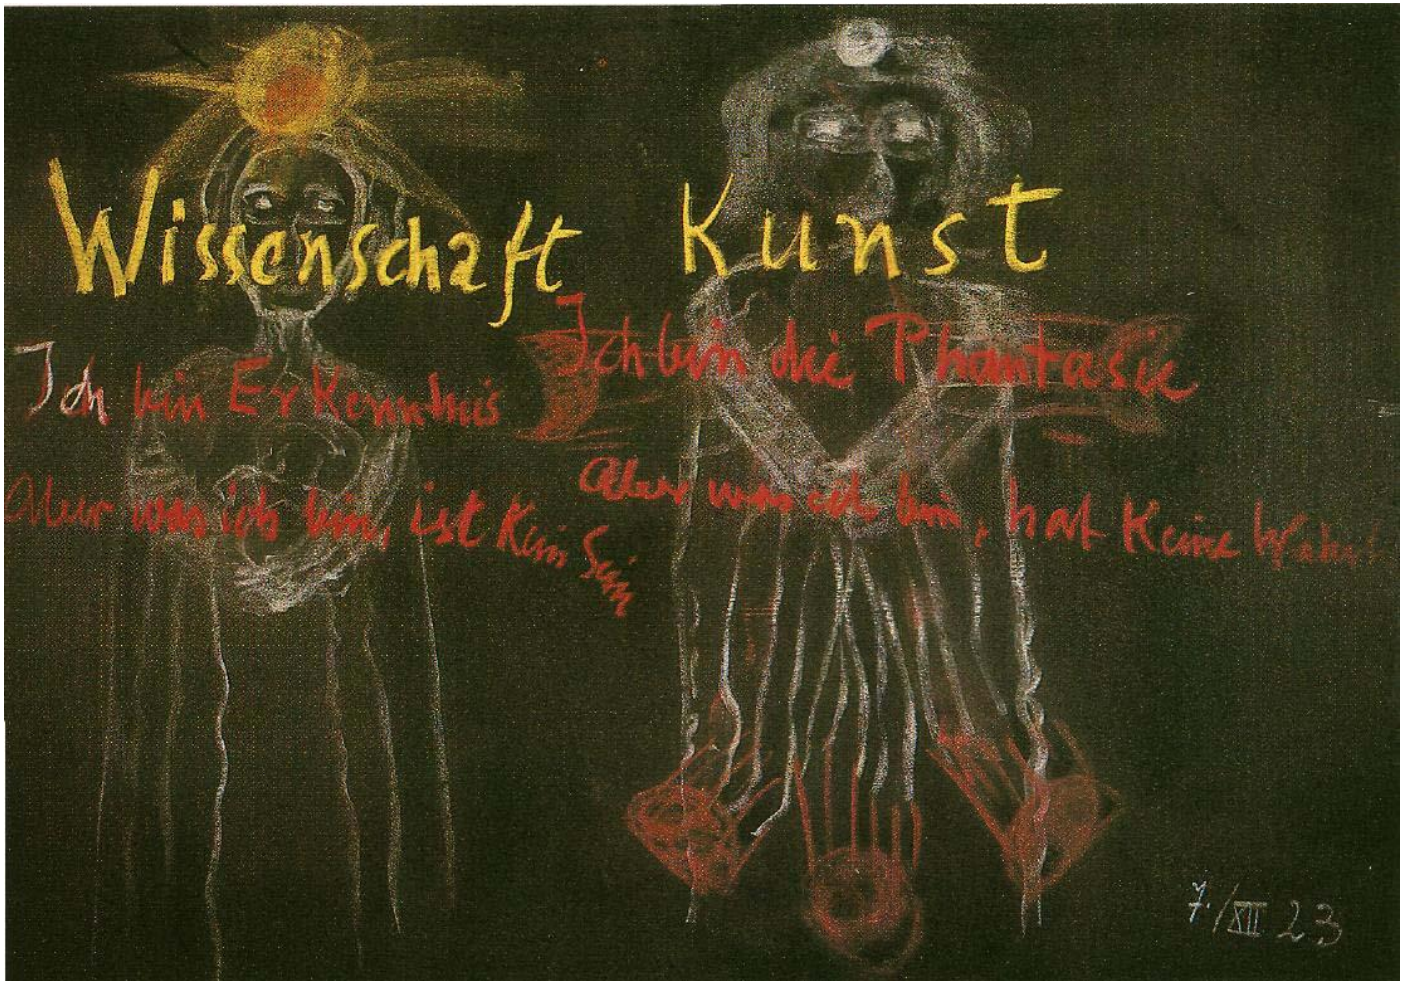 Wissenschaft
Ich bin Erkenntnis
Aber was ich bin, ist Kein Sein
Kunst
Ich bin die Phantasie
Aber was ich bin, hat Keine
7./XII 23